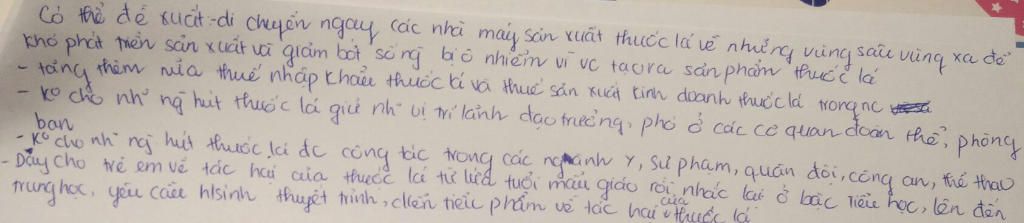 Có thể đề xuất: di chuyển ngay các nhà máy sản xuất thuốc lá về những vùng sâu vùng xa để
khó phát triển sản xuất và giảm bớt số ng bị ô nhiễm vì vc tạo ra sản phẩm thuốc lá
- tăng thêm nữa thuế nhập khẩu thuốc lá và thuế sản xuất kinh doanh thuốc lá trong nc
- Ko cho nh~ ng hút thuốc lá giữ nh~ vị trí lãnh đạo trưởng, phó ở các cơ quan đoàn thể, phòng
ban
- Ko cho nh~ ng hút thuốc lá đc công tác trong các ngành Y, sư phạm, quân đội, công an, thể thao
- Dạy cho trẻ em về tác hại của thuốc lá từ lứa tuổi mẫu giáo rồi nhắc lại ở bậc tiểu học, lên đến
trung học, yêu cầu h/sinh thuyết trình, diễn tiểu phẩm về tác hại của thuốc lá